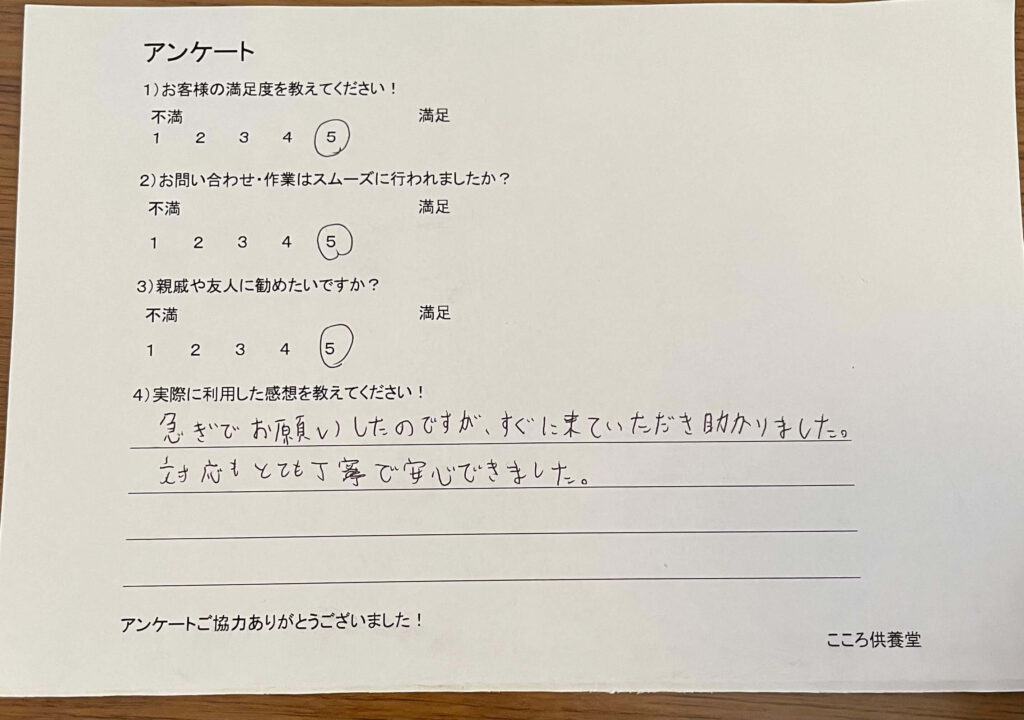 アンケート
1)お客様の満足度を教えてください！
不満 満足
1 2 3 4 5
2)お問い合わせ・作業はスムーズに行われましたか？
不満 満足
1 2 3 4 5
3)親戚や友人に勧めたいですか？
不満 満足
1 2 3 4 5
4)実際に利用した感想を教えてください！
急ぎでお願いしたのですが、すぐに来ていただき助かりました。
対応もとても丁寧で安心できました。
アンケートご協力ありがとうございました！
こころ供養堂